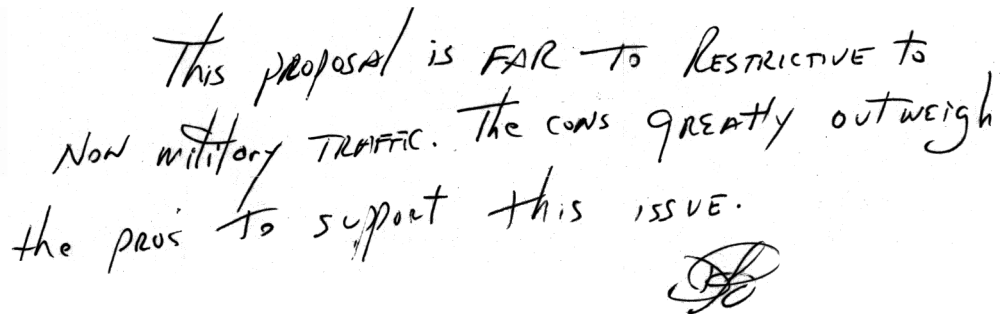 This proposal is FAR To RESTRICTIVE to
NON military TRAFFIC. The CONS GREATly outweigh
the pro's To support this ISSUE.